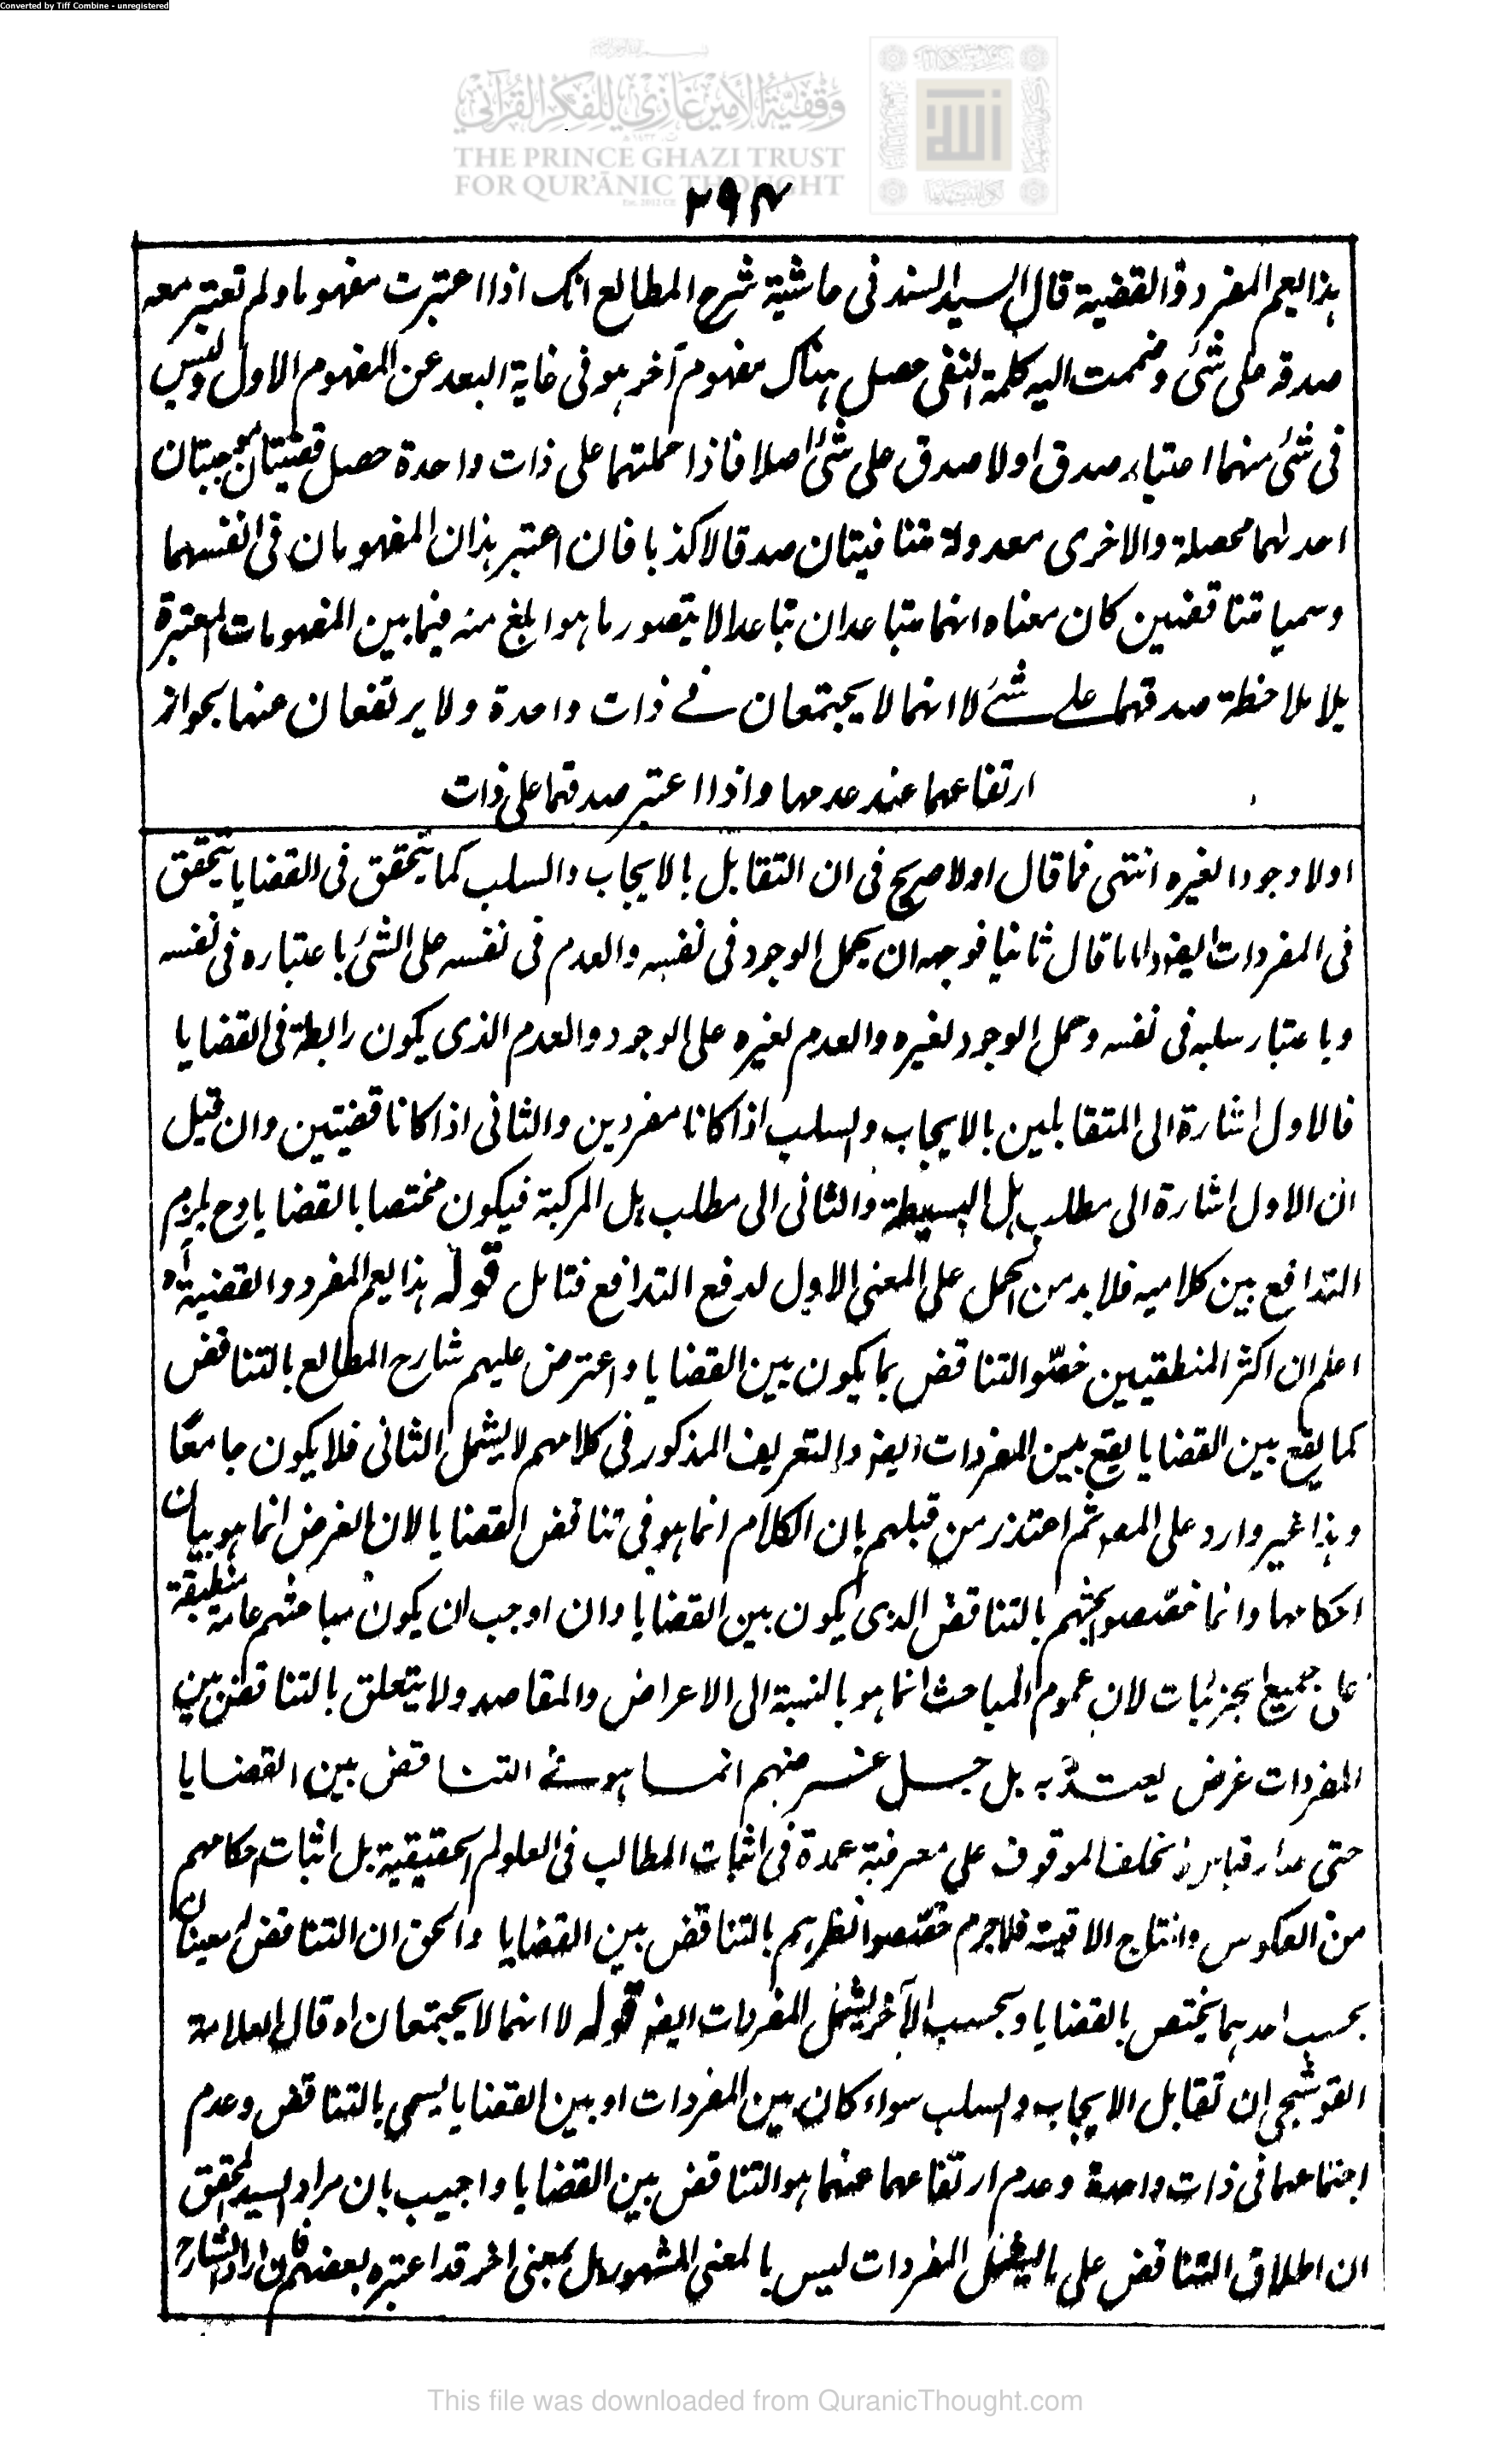 Converted by Tiff Combine - unregistered
وقفية الأمير غازي للفكر القرآني
THE PRINCE GHAZI TRUST
FOR QUR'ĀNIC THOUGHT
٢٩٤
هذا يعم المفرد والقضية قال السيد السند فى حاشية شرح المطالع انك اذا اعتبرت مفهوما ولم تعتبر معه
صدقه على شئ وضممت اليه كلمة النفى حصل هناك مفهوم آخر هو فى غاية البعد عن المفهوم الاول وليس
فى شئ منهما اعتبار صدق اولا صدق على شئ اصلا فاذا حملتهما على ذات واحدة حصل قضيتان موجبتان
احدىهما محصلة والاخرى معدولة متنافيتان صدقا لا كذبا فان اعتبر هذان المفهومان فى انفسهما
وسميا متناقضين كان معناه انهما متباعدان تباعدا لا يتصور ما هو ابلغ منه فيما بين المفهومات المعتبرة
بلا ملاحظة صدقهما على شئ لا انهما لا يجتمعان فى ذات واحدة ولا يرتفعان عنها بجواز
ارتفاعهما عند عدمها واذا اعتبر صدقهما على ذات
اولا وجودا لغيره انتهى فما قال اولا صريح فى ان التقابل بالايجاب والسلب كما يتحقق فى القضايا يتحقق
فى المفردات ايضا واما ما قال ثانيا فوجهه ان يحمل الوجود فى نفسه والعدم فى نفسه على الشئ باعتباره فى نفسه
وباعتبار سلبه فى نفسه وحمل الوجود لغيره والعدم لغيره على الوجود والعدم الذى يكون رابطة فى القضايا
فالاول اشارة الى المتقابلين بالايجاب والسلب اذا كانا مفردين والثانى اذا كانا قضيتين وان قيل
ان الاول اشارة الى مطلب هل البسيطة والثانى الى مطلب هل المركبة فيكون مختصا بالقضايا وح يلزم
التدافع بين كلاميه فلا بد من الحمل على المعنى الاول لدفع التدافع فتامل قوله هذا يعم المفرد والقضية اه
اعلم ان اكثر المنطقيين خصّوا التناقض بما يكون بين القضايا واعترض عليهم شارح المطالع بالتناقض
كما يقع بين القضايا يقع بين المفردات ايضا والتعريف المذكور فى كلامهم لا يشمل الثانى فلا يكون جامعًا
وهذا غير وارد على المص ثم اعتذر من قبلهم بان الكلام انما هو فى تناقض القضايا لان الغرض انما هو بيان
احكامها وانما خصّصوا بحثهم بالتناقض الذى يكون بين القضايا وان اوجب ان يكون مباحثهم عامة منطبقة
على جميع الجزئيات لان عموم المباحث انما هو بالنسبة الى الاعراض والمقاصد ولا يتعلق بالتناقض بين
المفردات غرض يعتدّ به بل جل غرضهم انما هو فى التناقض بين القضايا
حتى صار قياس الخلف الموقوف على معرفته عمدة فى اثبات المطالب فى العلوم الحقيقية بل اثبات احكامهم
من العكوس وانتاج الاقيسة فلاجرم خصّصوا نظرهم بالتناقض بين القضايا والحق ان التناقض له معنيان
بحسب احدهما يختص بالقضايا وبحسب الآخر يشمل المفردات ايضا قوله لا انهما لا يجتمعان اه قال العلامة
القوشجى ان تقابل الايجاب والسلب سواء كان بين المفردات او بين القضايا يسمى بالتناقض وعدم
اجتماعهما فى ذات واحدة وعدم ارتفاعهما عنهما هو التناقض بين القضايا واجيب بان مراد السيد المحقق
ان اطلاق التناقض على ما يشمل المفردات ليس بالمعنى المشهور بل بمعنى اخر قد اعتبره بعضهم
This file was downloaded from QuranicThought.com